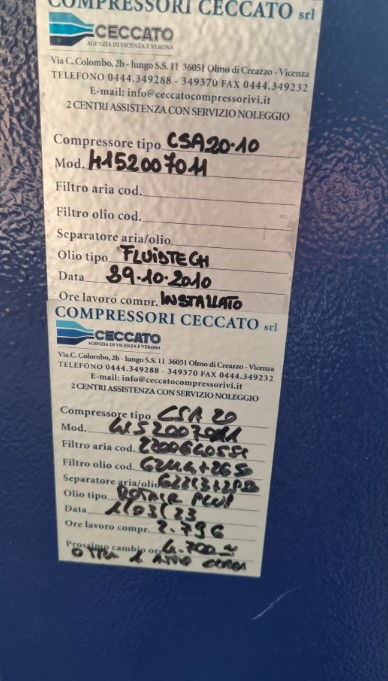 COMPRESSORI CECCATO srl
CECCATO
AGENZIA DI VICENZA E VERONA
Via C. Colombo, 2b - lungo S.S. 11 36051 Olmo di Creazzo - Vicenza
TELEFONO 0444.349288 - 349370 FAX 0444.349232
E-mail: info@ceccatocompressorivi.it
2 CENTRI ASSISTENZA CON SERVIZIO NOLEGGIO
Compressore tipo CSA20-10
Mod. 4152007011
Filtro aria cod.
Filtro olio cod.
Separatore aria/olio
Olio tipo FLUIDTECH
Data 39.10.2010
Ore lavoro compr. INSTALLATO
COMPRESSORI CECCATO srl
CECCATO
AGENZIA DI VICENZA E VERONA
Via C. Colombo, 2b - lungo S.S. 11 36051 Olmo di Creazzo - Vicenza
TELEFONO 0444.349288 - 349370 FAX 0444.349232
E-mail: info@ceccatocompressorivi.it
2 CENTRI ASSISTENZA CON SERVIZIO NOLEGGIO
Compressore tipo CSA 20
Mod. 4152007011
Filtro aria cod.
Filtro olio cod.
Separatore aria/olio
Olio tipo ROTAIR PLUS
Data 1/03/23
Ore lavoro compr. 2.796
Prossimo cambio ore 4.700
O TRA 1 ANNO CIRCA